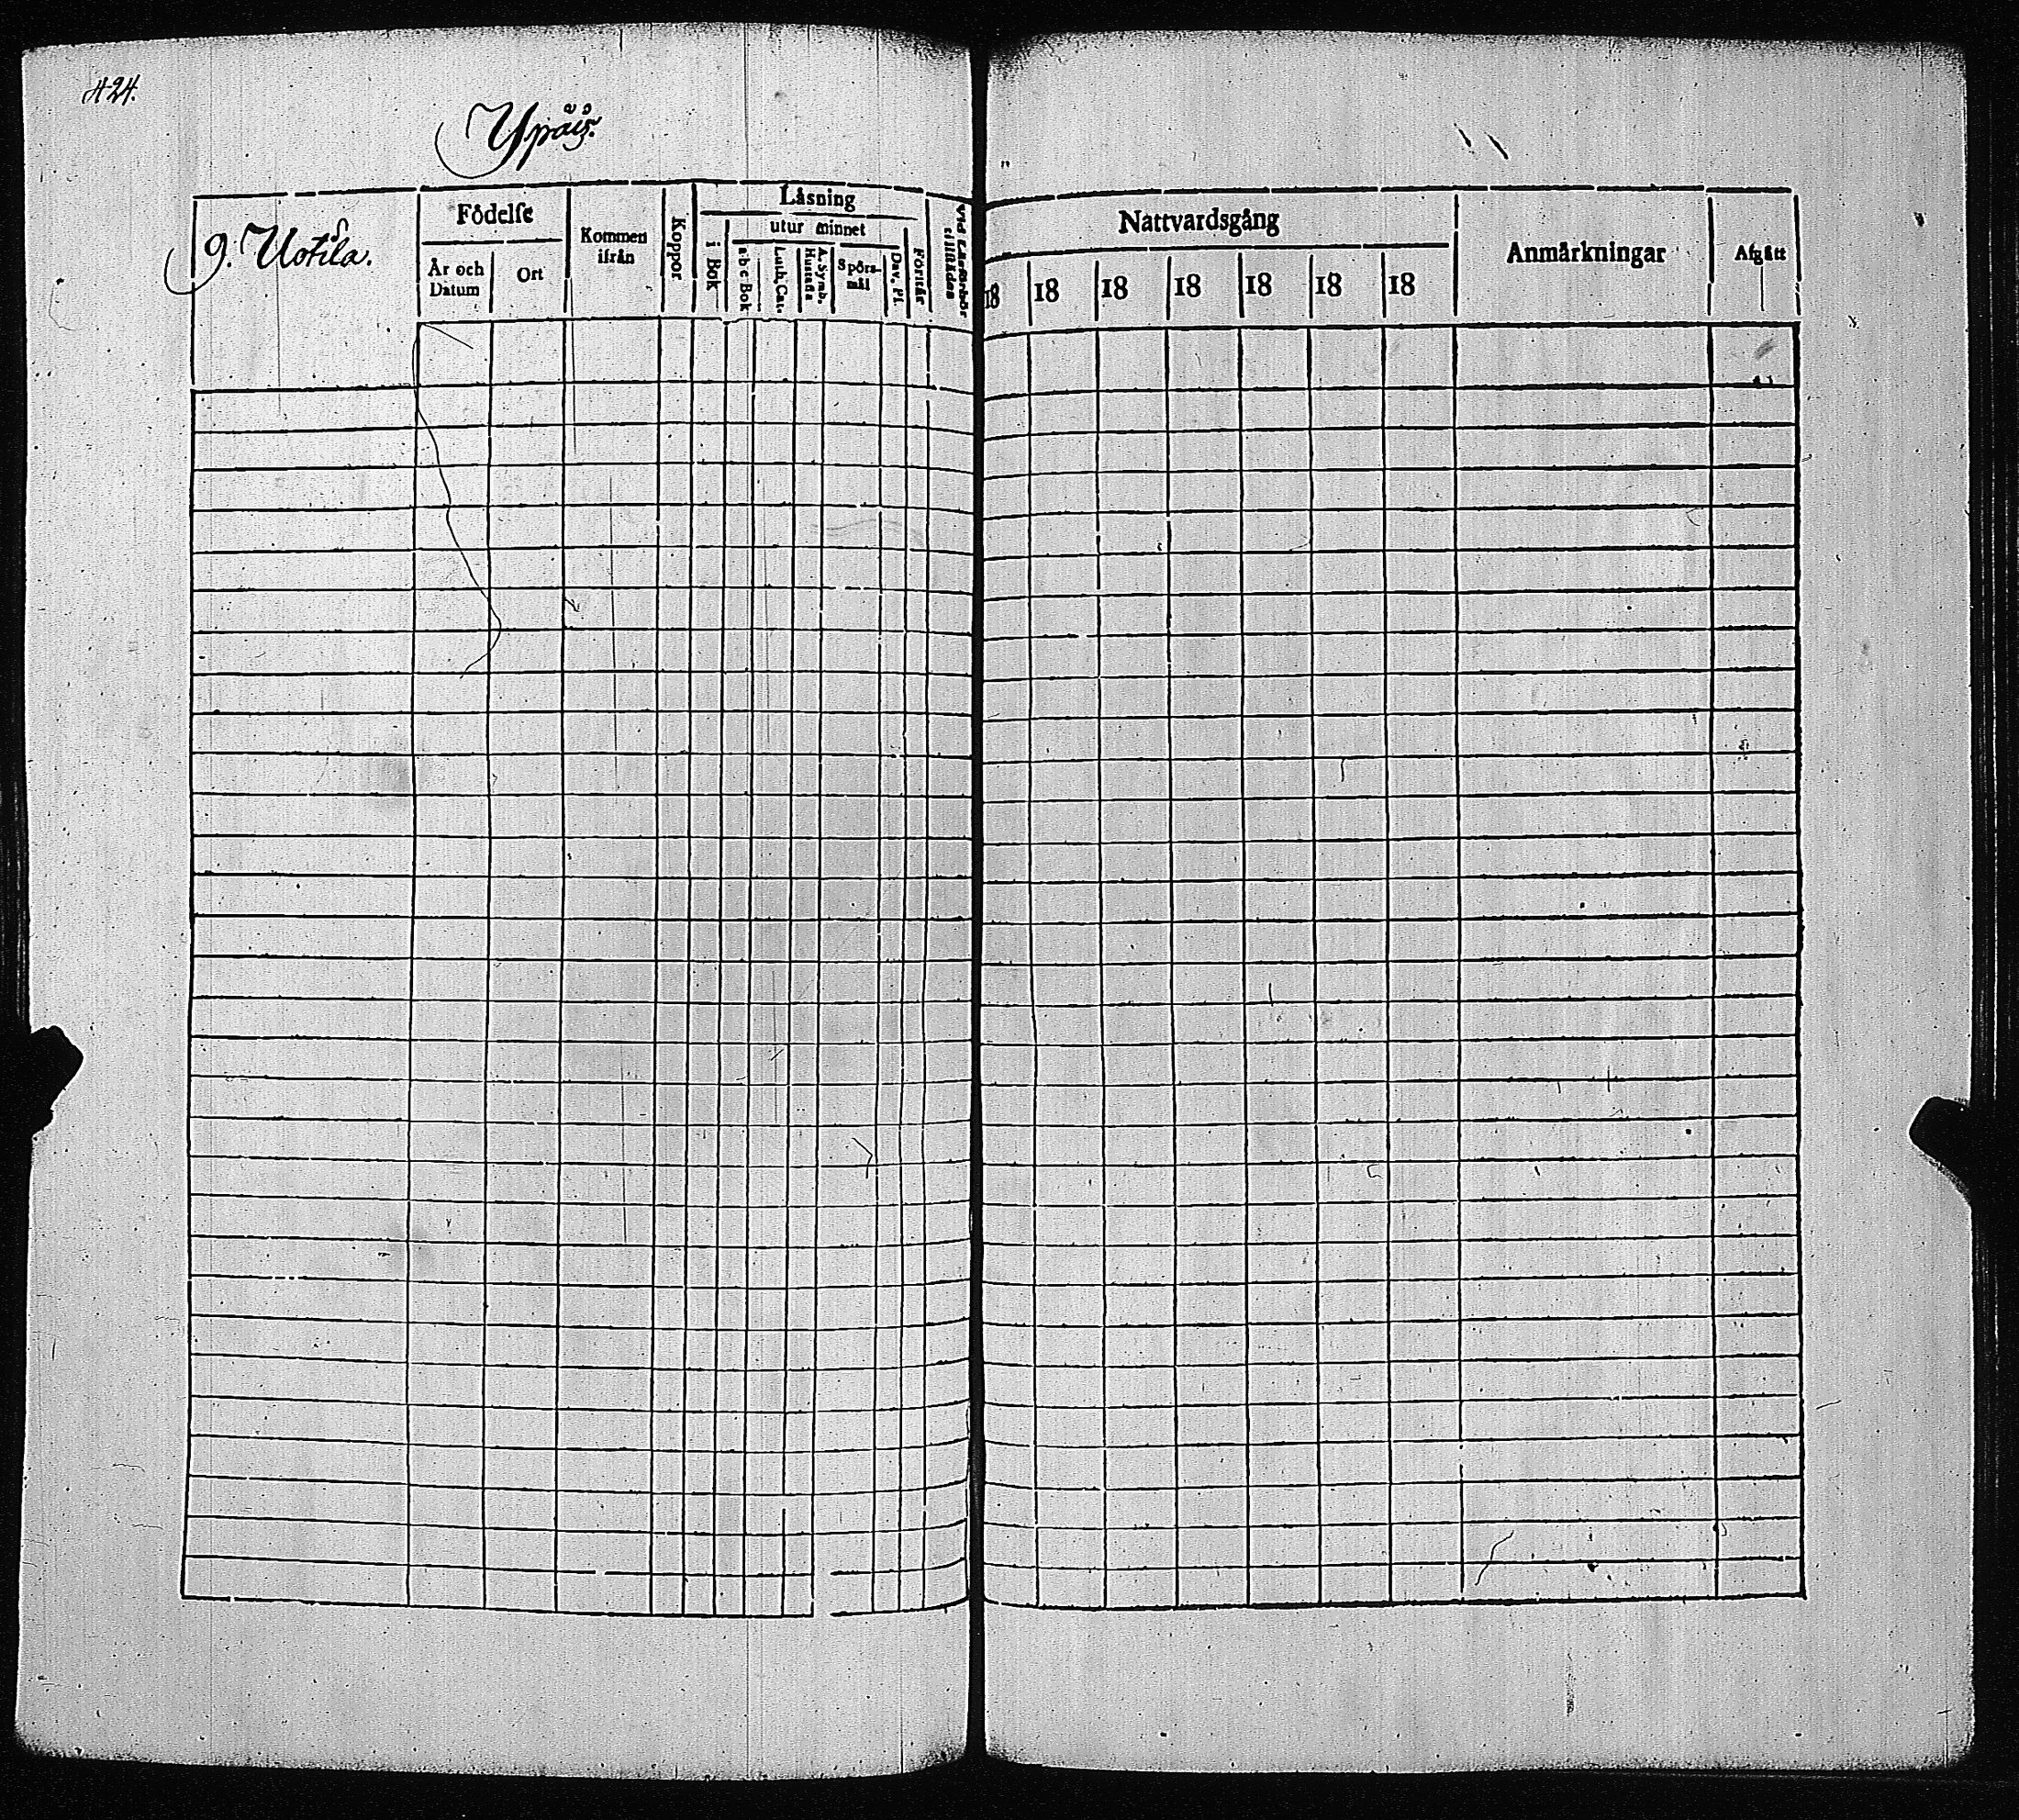 424.
Ypäis.
9. Uotila.
Födelse
År och Datum
Ort
Kommen ifrån
Koppor
Läsning
i Bok
utur minnet
a-b-c-Bok
Luth. Cat.
A. Symb. Hustafla
Spörsmål
Dav. Pl.
Förstår
Vid Läsförhör tillstädes
Nattvardsgång
18 18 18 18 18 18 18
Anmärkningar
Afgått